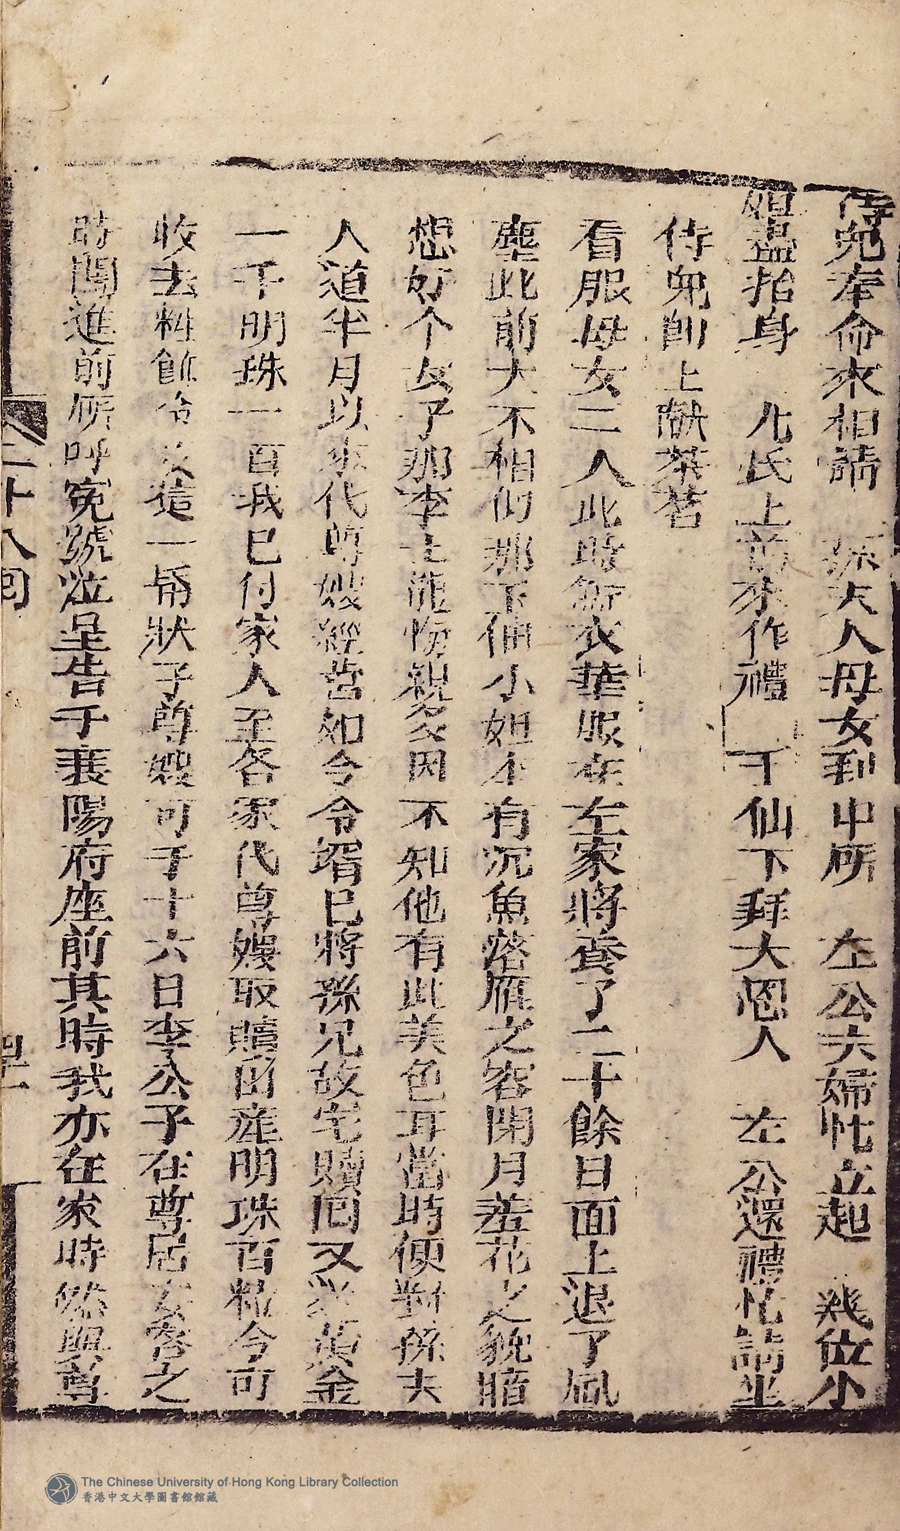 侍兒奉命來相請 孫夫人母女到中所 左公夫婦忙立起 幾位小
姐盡抬身 尤氏上前來作禮 千仙下拜大恩人 左公還禮忙請坐
侍兒即上献茶茗
看服母女二人此時新衣華服在左家將養了二十餘日面上退了風
塵此前大不相仝那千仙小姐本有沉魚落雁之容閉月羞花之貌暗
想好个女子那李士龍悔親多因不知他有此美色耳當時便對孫夫
人道半月以來代尊嫂經營如今令壻已將孫兄故宅贖囘又送黃金
一千明珠一百我已付家人至各家代尊嫂取贖田產明珠百粒今可
收去粧飾令愛這一昏狀子尊嫂可于十六日李公子在尊居宴客之
時闖進前所呼寃號泣呈告于襄陽府座前其時我亦在家時然與尊
二十八囘